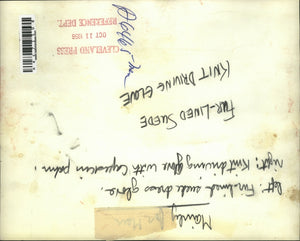 CLEVELAND PRESS
OCT 11 1956
REFERENCE DEPT.
FUR-LINED SUEDE
KNIT DRIVING GLOVE
Mainly
left: Fur-lined suede dress glove.
right: Knit driving glove with Capeskin palm.